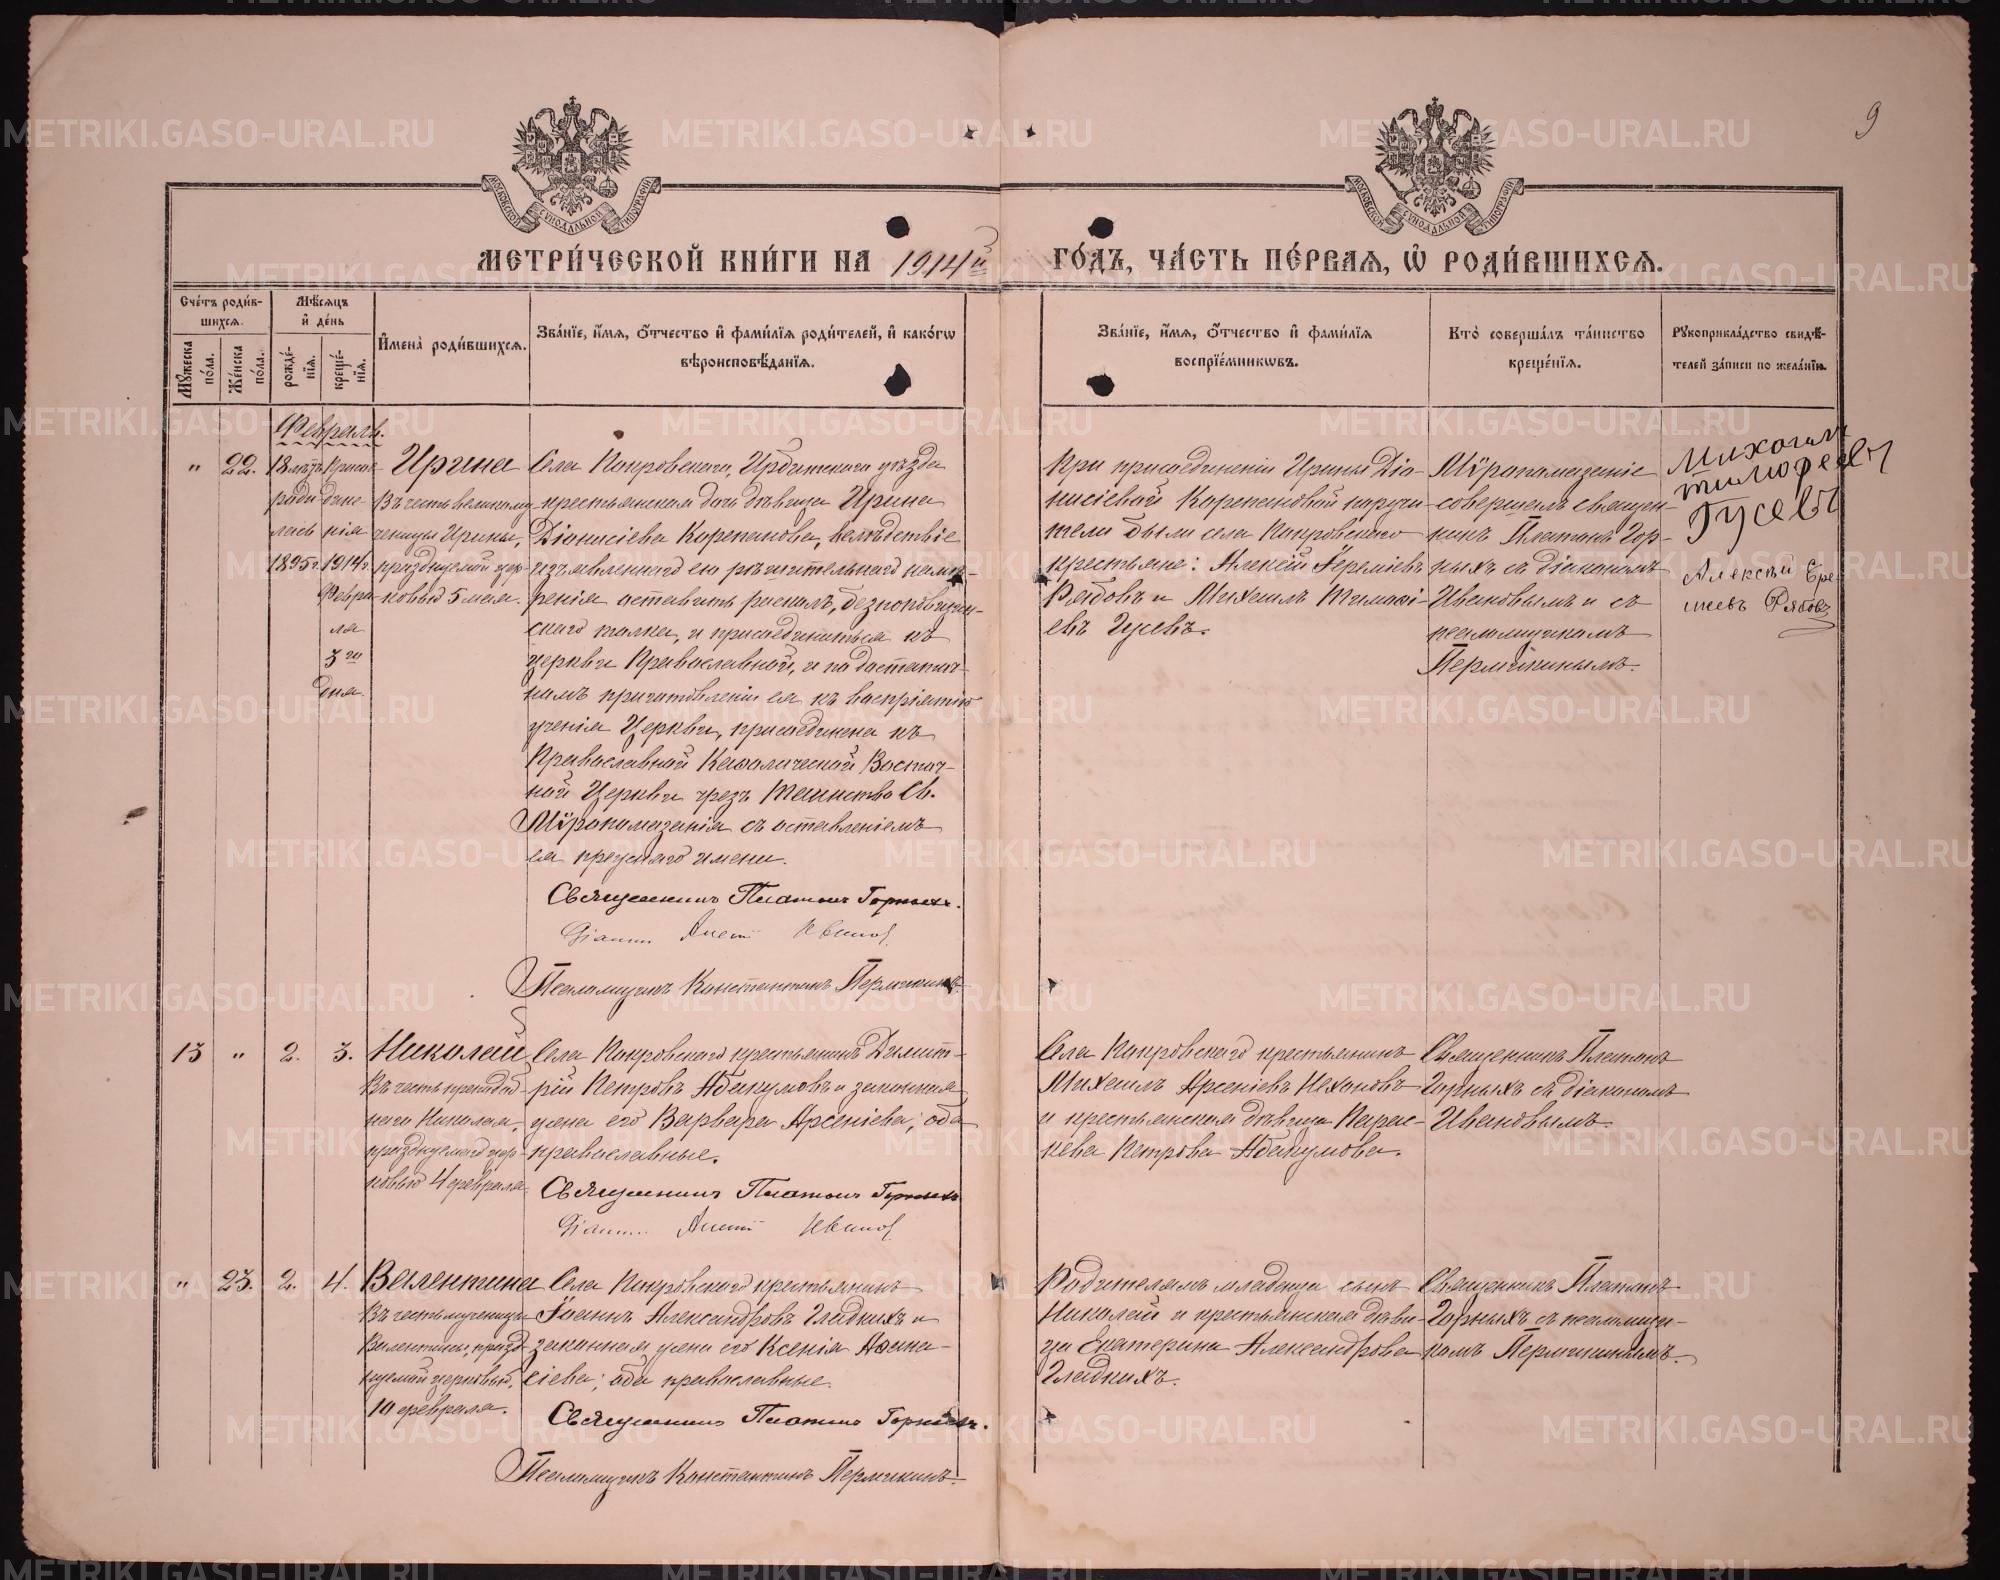 9
МОСКОВСКОЙ СѴНОДАЛЬНОЙ ТИПОГРАФІИ
МОСКОВСКОЙ СѴНОДАЛЬНОЙ ТИПОГРАФІИ
МЕТРИ́ЧЕСКОЙ КНИ́ГИ НА 1914й ГО́ДЪ, ЧА́СТЬ ПЕ́РВАЯ, Ѡ҆ РОДИ́ВШИХСЯ.
Сче́тъ роди́в-
шихся.
Мꙋ́жеска по́ла.
Же́нска по́ла.
Мѣ́сяцъ
и҆ де́нь
рожде́-
нїя.
креще́-
нїя.
И҆мена̀ роди́вшихся.
Зва́нїе, и҆́мя, ѻ҆́тчество и҆ фами́лїя роди́телей, и҆ како́гѡ
вѣроисповѣ́данїя.
Зва́нїе, и҆́мя, ѻ҆́тчество и҆ фами́лїя
воспрїе́мникѡвъ.
Кто̀ соверша́лъ та́инство
креще́нїя.
Рꙋкоприкла́дство свидѣ́-
телей за́писи по жела́нїю.
Февраль.
" 22.
18 мар
роди
лась
1895 г.
дине
нія
1914 г.
Февра-
ля
3го
дня.
Ирина
Въ честь великому-
ченицы Ирины,
празднуемой цер-
ковью 5 мая.
Села Покровскаго, Ирбитскаго уѣзда
крестьянская дочь дѣвица Ирина
Діонисіева Корепанова, вслѣдствіе
изъявленнаго ею рѣшительнаго намѣ-
ренія оставить расколъ, безпоповщин-
скаго толка, и присоединиться къ
церкви Православной, и по достаточ-
номъ приготовленіи ея къ воспріятію
ученія Церкви, присоединена къ
Православной Каѳолической Восточ-
ной Церкви чрезъ Таинство Св.
Мѵропомазанія съ оставленіемъ
ея прежняго имени.
Священникъ Платонъ Горныхъ.
Діаконъ Ивановъ
Псаломщикъ Константинъ Пермикинъ.
При присоединеніи Ирины Діо-
нисіевой Корепановой поручи-
тели были села Покровскаго
крестьяне: Алексій Іереміевъ
Рябовъ и Михаилъ Тимофі-
евъ Гусевъ.
Мѵропомазаніе
совершалъ священ-
никъ Платонъ Гор-
ныхъ съ діакономъ
Ивановымъ и съ
псаломщикомъ
Пермикинымъ.
Михаилъ
тимофеевъ
Гусевъ
Алексѣй Ере-
меевъ Рябовъ
13 " 2. 3.
Николай
Въ честь преподоб-
наго Николая,
празднуемаго цер-
ковью 4 февраля
Села Покровскаго крестьянинъ Димит-
рій Петровъ Абакумовъ и законная
жена его Варвара Арсеніева; оба
православные.
Священникъ Платонъ Горныхъ
Діаконъ Ивановъ
Села Покровскаго крестьянинъ
Михаилъ Арсеніевъ Нехоновъ
и крестьянская дѣвица Парас-
кева Петрова Абакумова.
Священникъ Платонъ
Горныхъ съ діакономъ
Ивановымъ.
" 23. 2. 4.
Валентина
Въ честь мученицы
Валентины, празд-
нуемой церковью,
10 февраля.
Села Покровскаго крестьянинъ
Іоаннъ Александровъ Гладкихъ и
законная жена его Ксенія Аѳана-
сіева; оба православные.
Священникъ Платонъ Горныхъ.
Псаломщикъ Константинъ Пермикинъ.
Родителямъ младенца сынъ
Николай и крестьянская дѣви-
ца Екатерина Александрова
Гладкихъ.
Священникъ Платонъ
Горныхъ съ псаломщи-
комъ Пермикинымъ.
METRIKI.GASO-URAL.RU